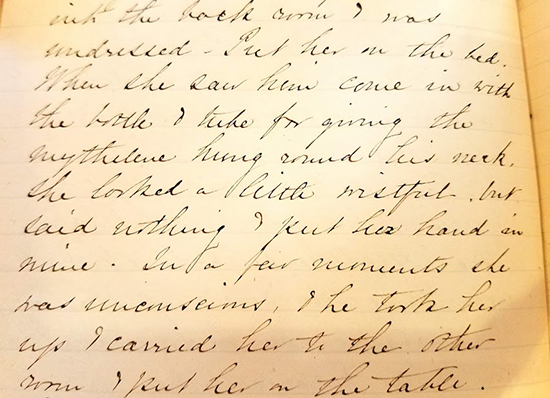 into the back room & was
undressed - Put her on the bed.
When she saw him come in with
the bottle & tube for giving the
mythelene hung round his neck,
she looked a little wistful, but
said nothing & put her hand in
mine. In a few moments she
was unconscious, & he took her
up & carried her to the other
room & put her on the table.